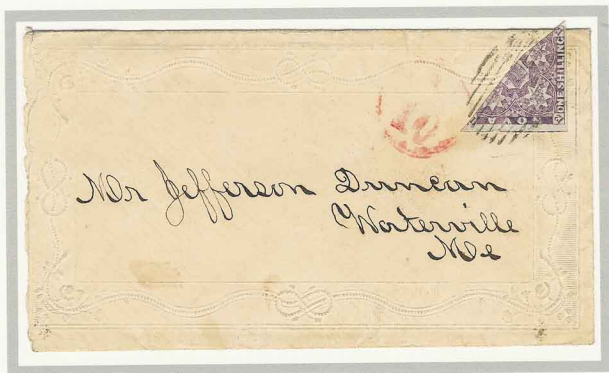 ONE SHILLING
10
Mr Jefferson Duncan
Waterville
Me